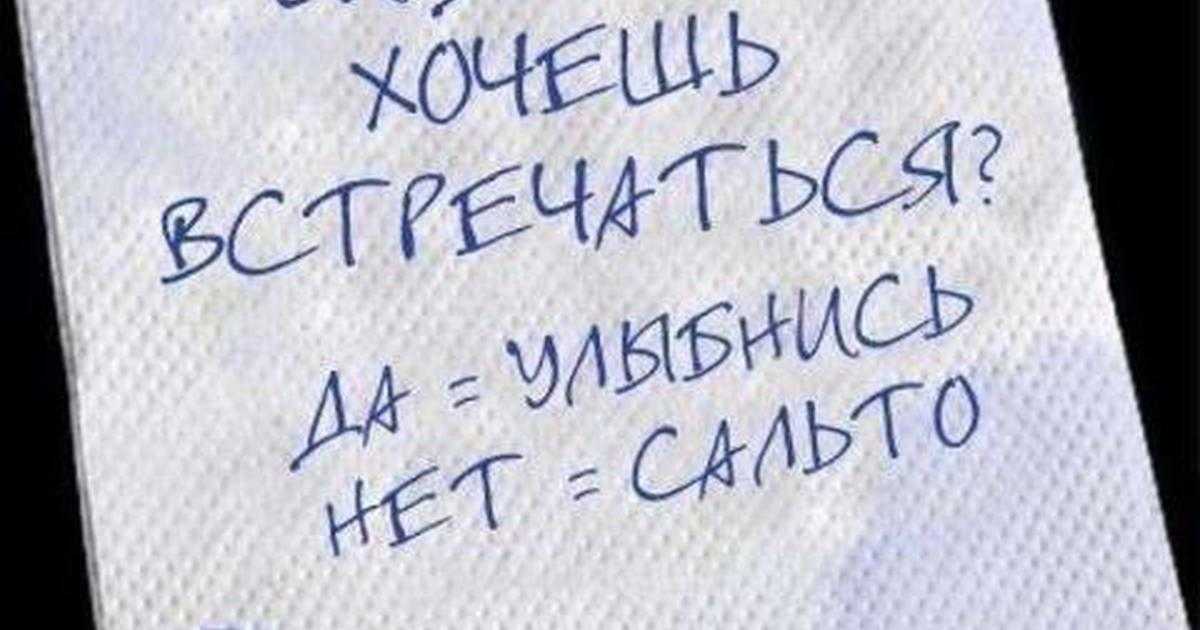 ХОЧЕШЬ
ВСТРЕЧАТЬСЯ?
ДА = УЛЫБНИСЬ
НЕТ = САЛЬТО